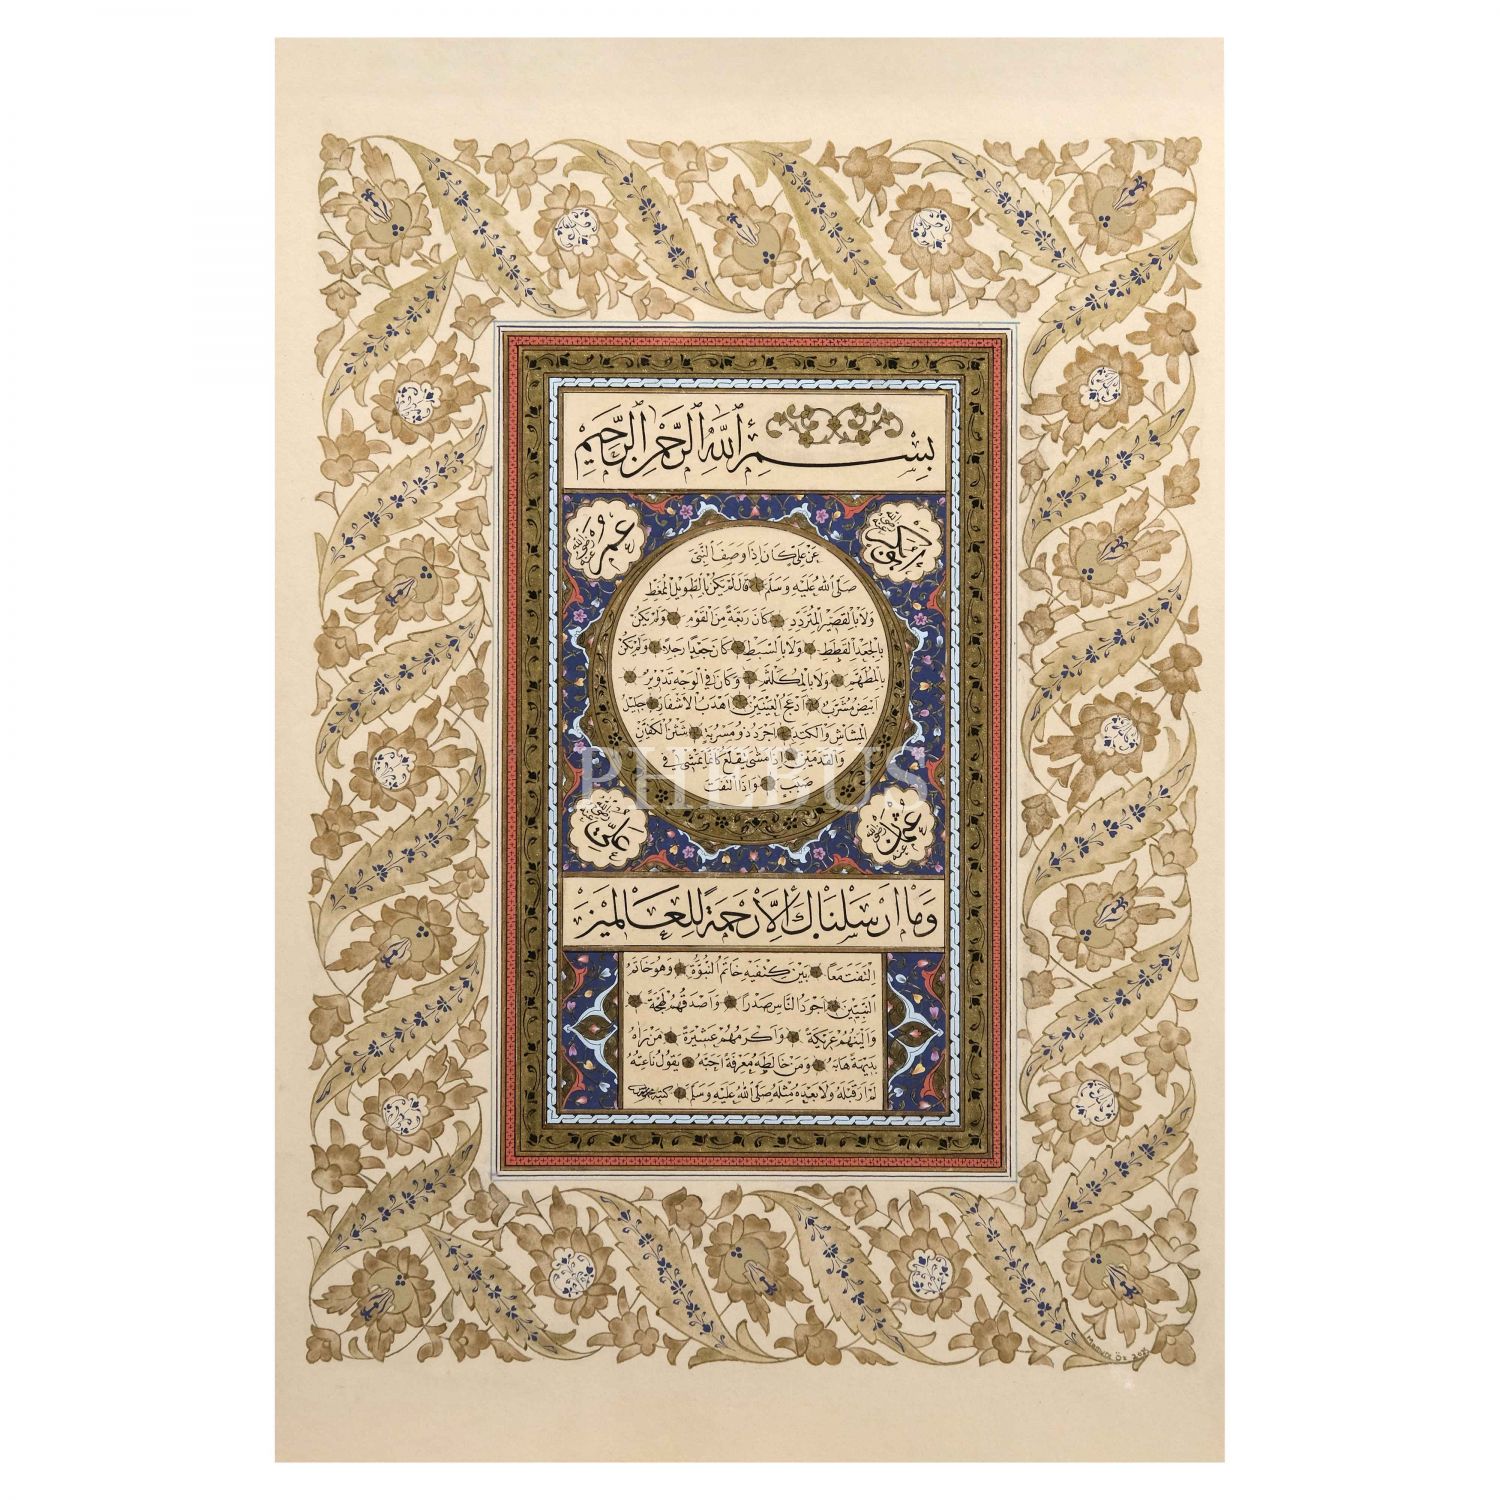 بِسْمِ اللّٰهِ الرَّحْمٰنِ الرَّحِيمِ
ابوبكر رضي الله عنه
عمر رضي الله عنه
عَنْ عَلِيٍّ كَانَ اِذَا وَصَفَ النَّبِيَّ
صَلَّى اللّٰهُ عَلَيْهِ وَسَلَّمَ قَالَ لَمْ يَكُنْ بِالطَّوِيلِ الْمُمَغَّطِ
وَلَا بِالْقَصِيرِ الْمُتَرَدِّدِ كَانَ رَبْعَةً مِنَ الْقَوْمِ وَلَمْ يَكُنْ
بِالْجَعْدِ الْقَطَطِ وَلَا بِالسَّبْطِ كَانَ جَعْدًا رَجِلًا وَلَمْ يَكُنْ
بِالْمُطَهَّمِ وَلَا بِالْمُكَلْثَمِ وَكَانَ فِي الْوَجْهِ تَدْوِيرٌ
اَبْيَضُ مُشْرَبٌ اَدْعَجُ الْعَيْنَيْنِ اَهْدَبُ الْاَشْفَارِ جَلِيلُ
الْمُشَاشِ وَالْكَتَدِ اَجْرَدُ ذُو مَسْرُبَةٍ شَثْنُ الْكَفَّيْنِ
وَالْقَدَمَيْنِ اِذَا مَشَى يَتَقَلَّعُ كَاَنَّمَا يَمْشِي فِي
صَبَبٍ وَاِذَا الْتَفَتَ
PHEBUS
عثمان رضي الله عنه
علي رضي الله عنه
وَمَا اَرْسَلْنَاكَ اِلَّا رَحْمَةً لِلْعَالَمِينَ
الْتَفَتَ مَعًا بَيْنَ كَتِفَيْهِ خَاتَمُ النُّبُوَّةِ وَهُوَ خَاتَمُ
النَّبِيِّينَ اَجْوَدُ النَّاسِ صَدْرًا وَاَصْدَقُهُمْ لَهْجَةً
وَاَلْيَنُهُمْ عَرِيكَةً وَاَكْرَمُهُمْ عَشِيرَةً مَنْ رَاٰهُ
بَدِيهَةً هَابَهُ وَمَنْ خَالَطَهُ مَعْرِفَةً اَحَبَّهُ يَقُولُ نَاعِتُهُ
لَمْ اَرَ قَبْلَهُ وَلَا بَعْدَهُ مِثْلَهُ صَلَّى اللّٰهُ عَلَيْهِ وَسَلَّمَ كتبه